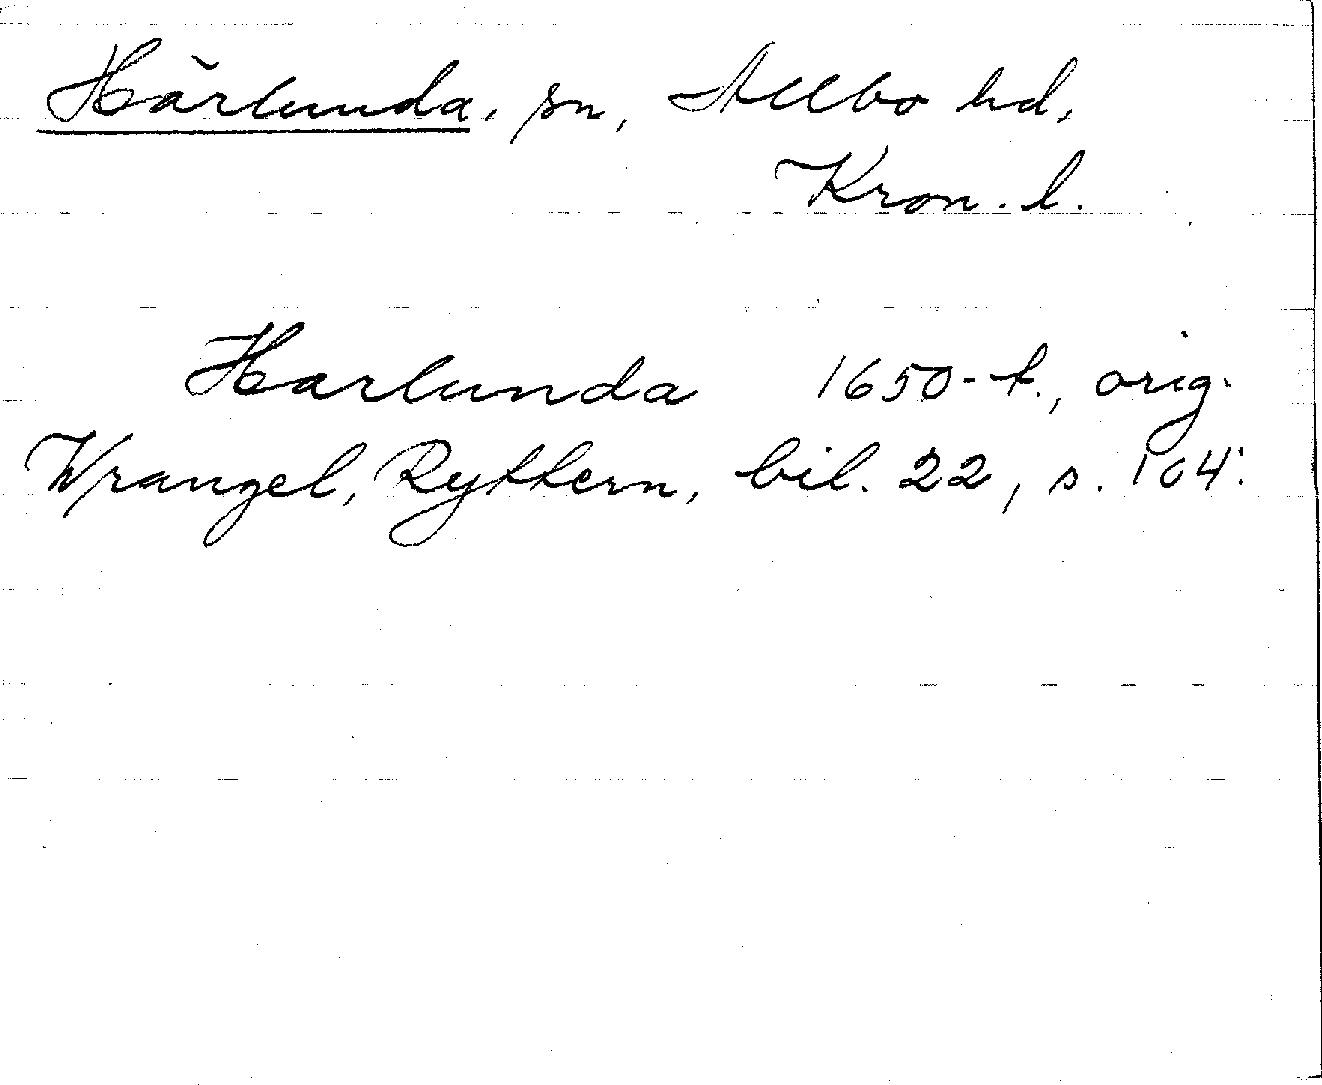 Härlunda, sn, Allbo hd,
Kron. l.
Harlunda 1650-t., orig.
Wrangel, Ryttern, bil. 22, s. 164.